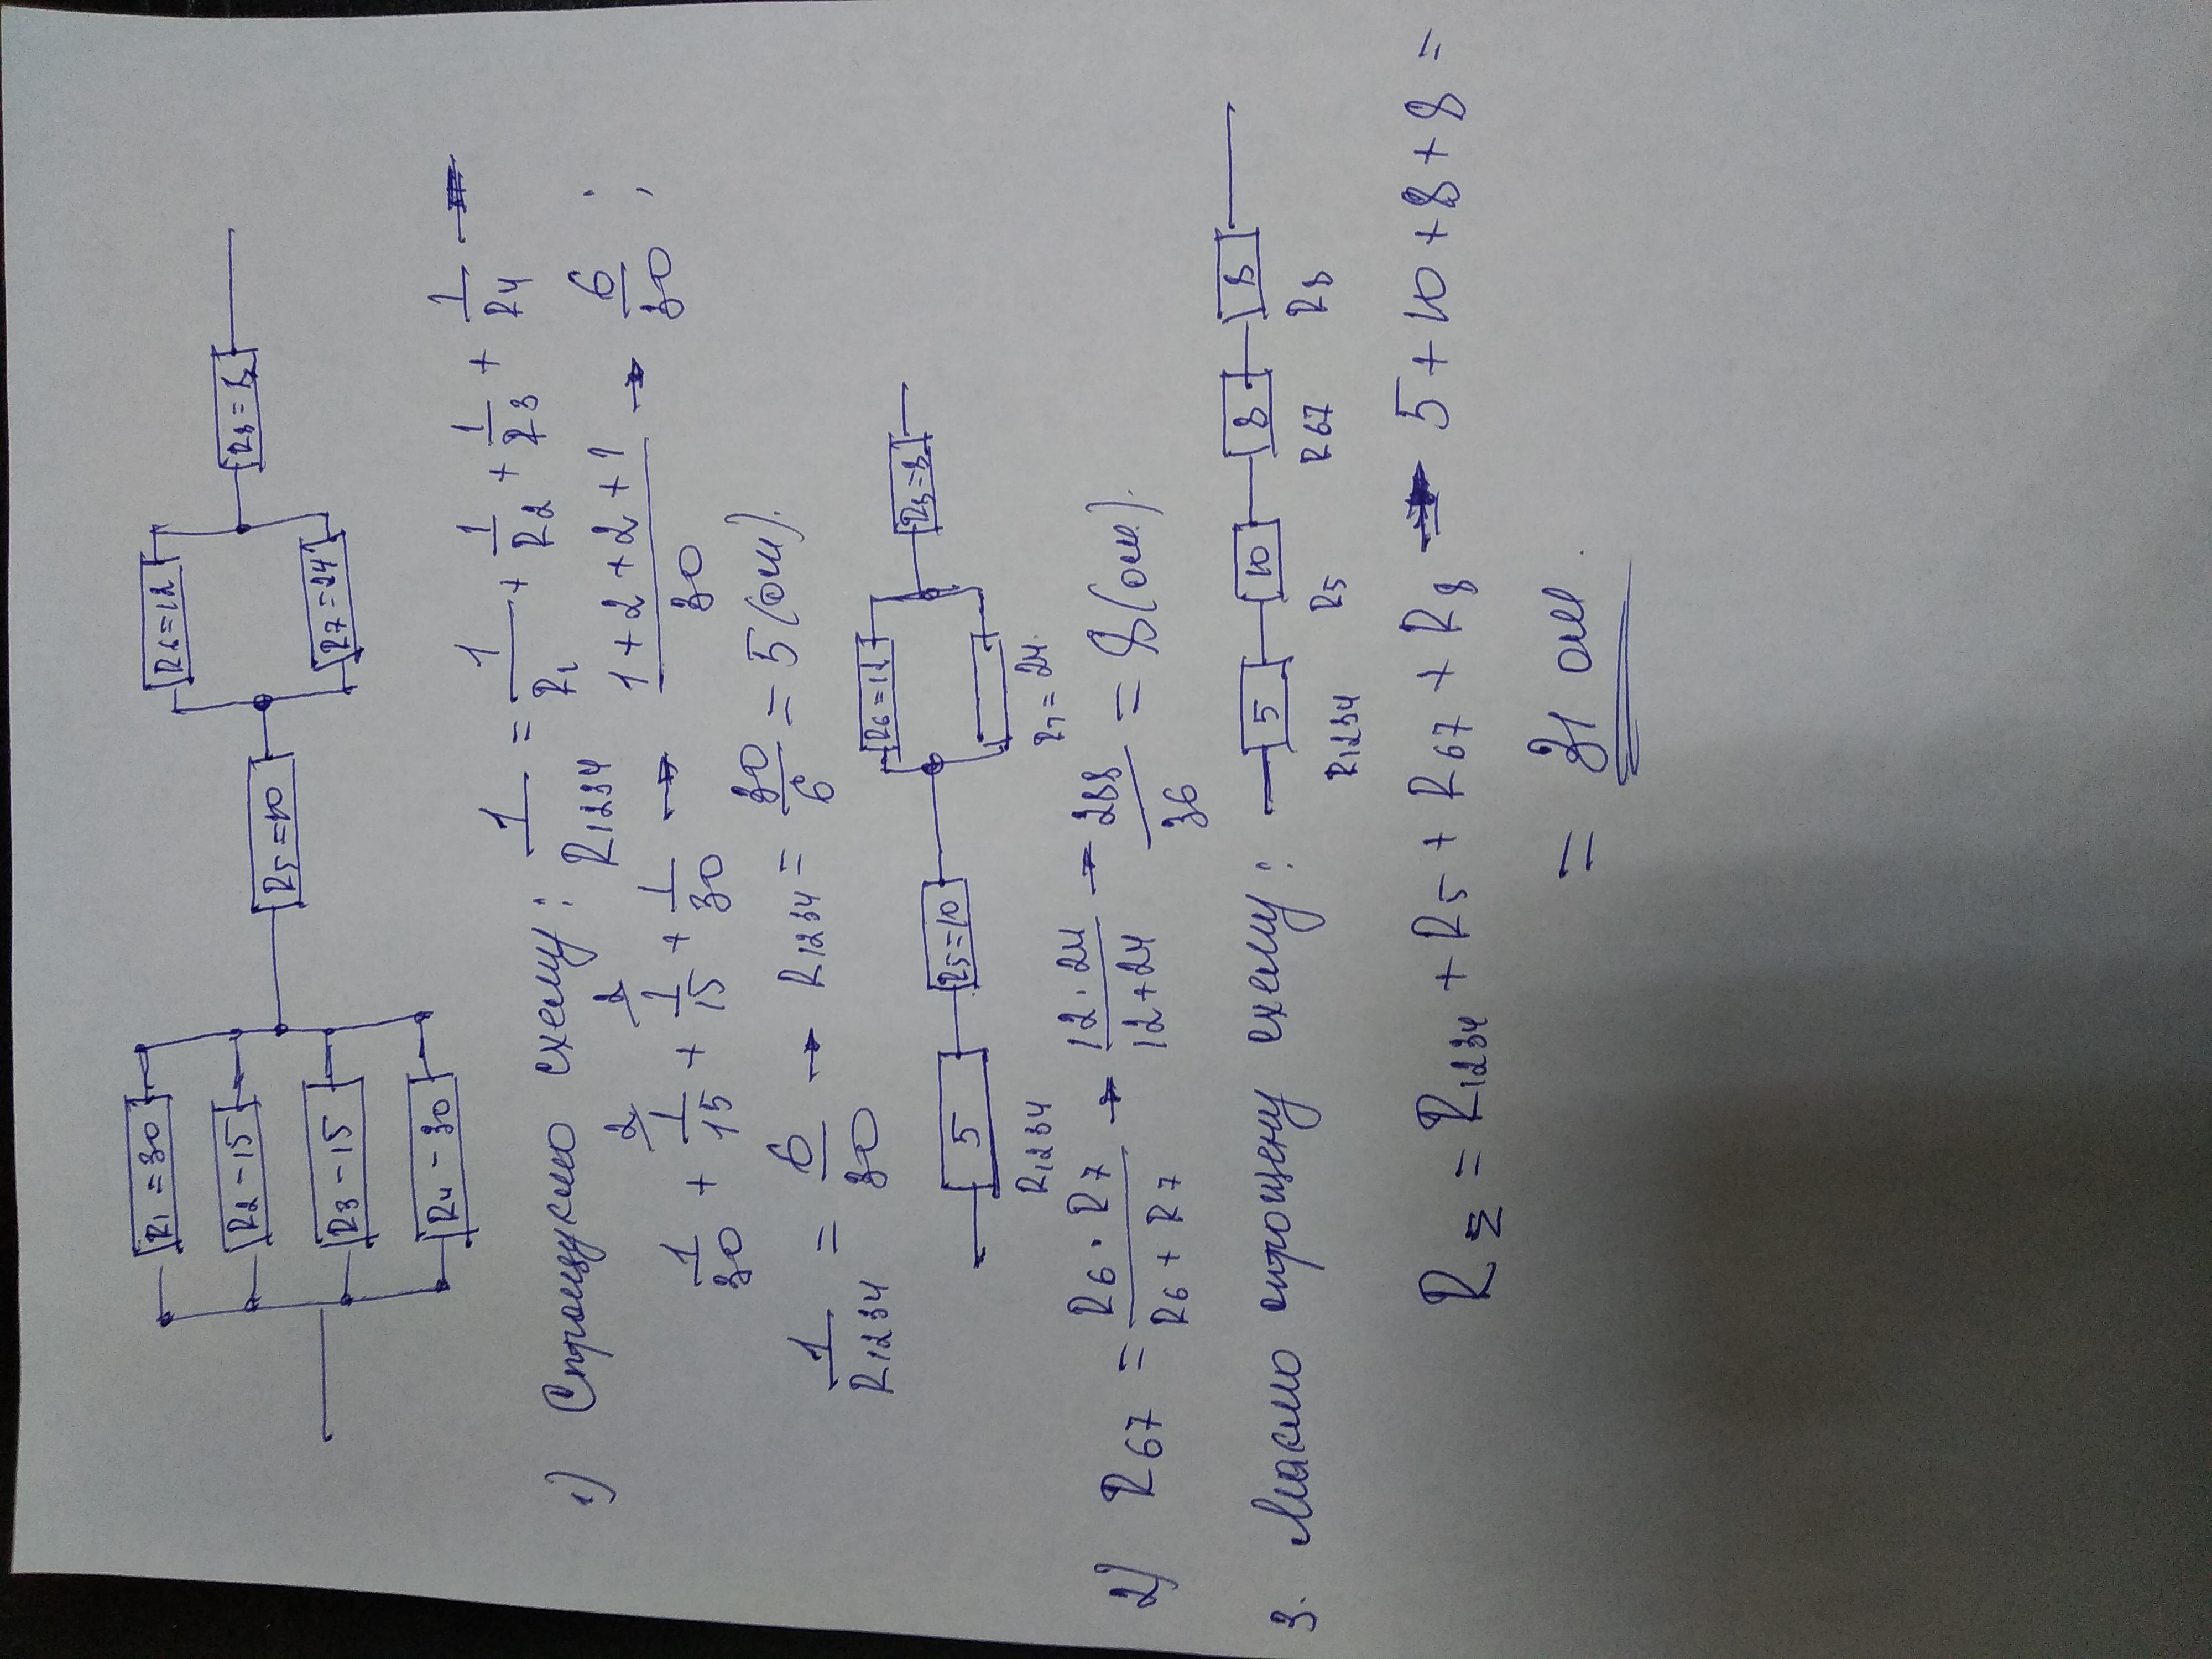 R1 = 30
R2 - 15
R3 - 15
R4 - 30
R5 = 10
R6 = 12
R7 = 24
R8 = 8
1) Спрощуємо схему: 1/R1234 = 1/R1 + 1/R2 + 1/R3 + 1/R4 →
1/30 + 1/15 2 + 1/15 2 + 1/30 → (1+2+2+1)/30 → 6/30 ;
1/R1234 = 6/30 → R1234 = 30/6 = 5 (ом).
5
R1234
R5 = 10
R6 = 12
R7 = 24.
R8 = 8
2) R67 = (R6 · R7)/(R6 + R7) → (12 · 24)/(12 + 24) → 288/36 = 8 (ом).
3. Маємо спрощену схему:
5 10 8 8
R1234 R5 R67 R8
RΣ = R1234 + R5 + R67 + R8 → 5 + 10 + 8 + 8 =
= 31 ом.